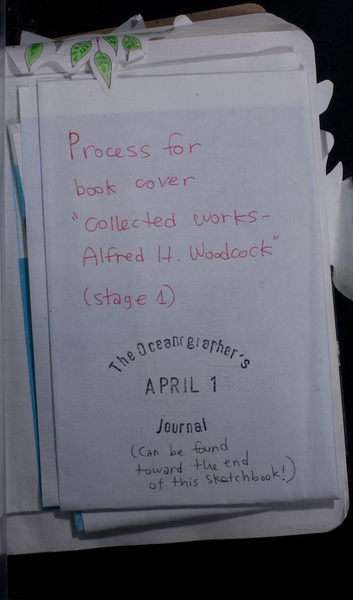 Process for
book cover
"collected works-
Alfred H. Woodcock"
(stage 1)
The Oceanrgrapher's
APRIL 1
Journal
(Can be found
toward the end
of this sketchbook!)